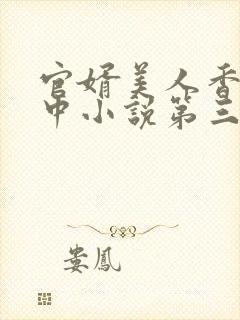 官婿美人香
中小說第三
娄鳳